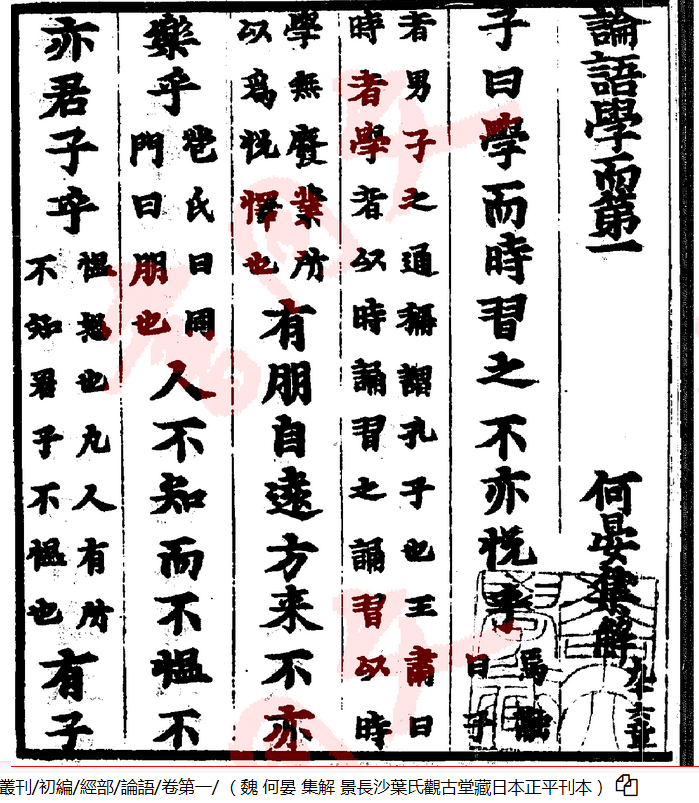 論語學而第一 何晏集解 凡十六章
子曰學而時習之不亦悅乎 馬融 曰子
者男子之通稱謂孔子也王肅曰
時者學者以時誦習之誦習以時
學無廢業所 以爲悅懌也 有朋自遠方来不亦
樂乎 苞氏曰同 門曰朋也 人不知而不慍不
亦君子乎 慍怒也凡人有所 不知君子不慍也 有子
叢刊/初編/經部/論語/卷第一/ （ 魏 何晏 集解 景長沙葉氏觀古堂藏日本正平刊本 ）